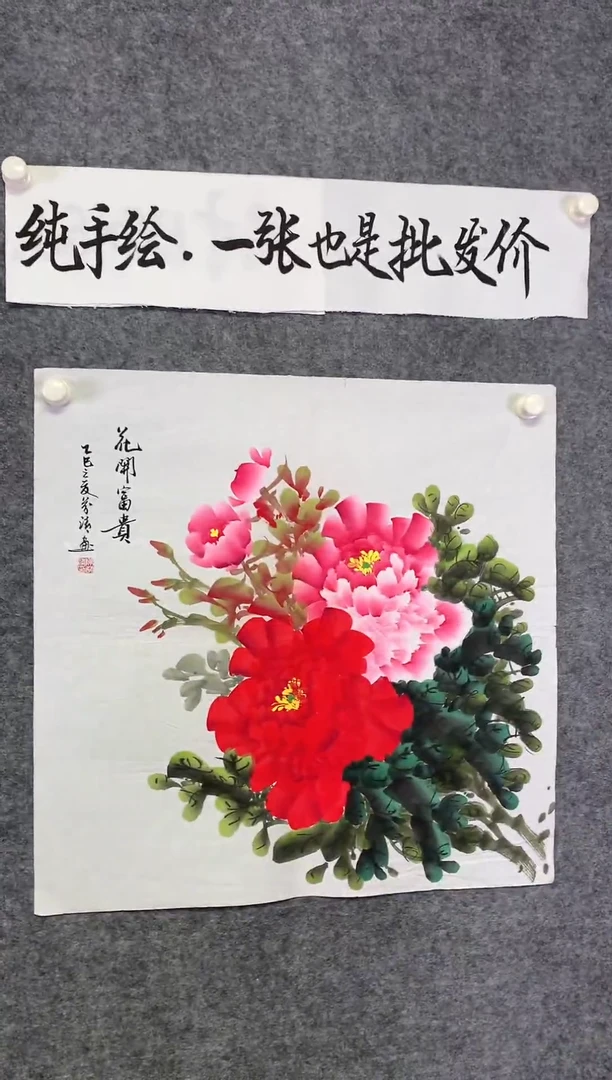 纯手绘.一张也是批发价
花開富貴
乙巳之夏芳清画